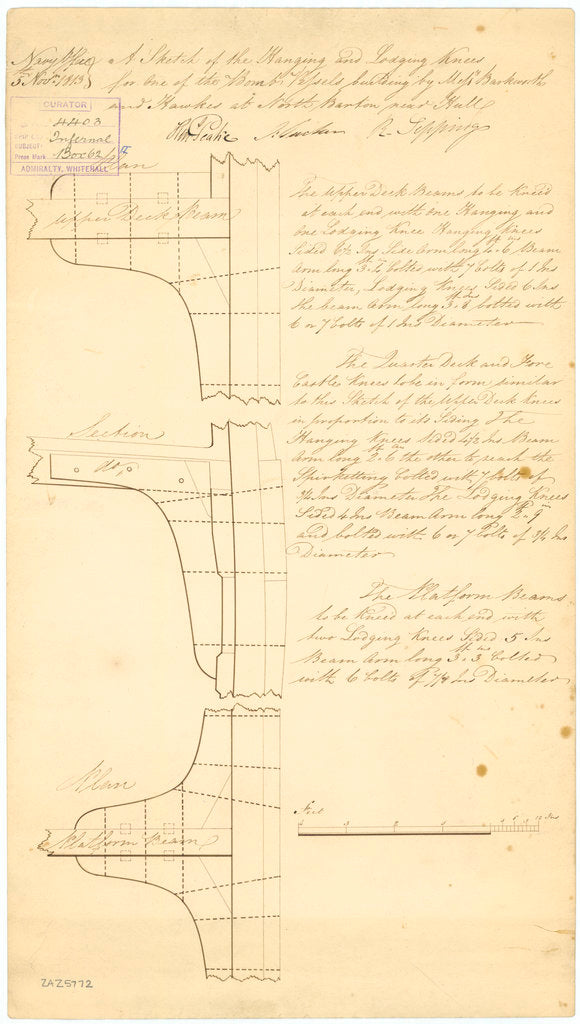 Navy Office
5 Novr. 1813
A Sketch of the Hanging and Lodging Knees
for one of the Bomb Vessels building by Messrs Barkworth
and Hawkes at North Barton near Hull
CURATOR
4403
SUBJECT
Internal
Press Mark Box 62
ADMIRALTY, WHITEHALL
Hy Peake
R Seppings
Plan
Upper Deck Beam
The Upper Deck Beams to be Kneed
at each end with one Hanging and
one Lodging Knee Hanging Knees
Sided 6½ Ins Side Arm long Beam
Arm long bolted with 7 bolts of 1 Ins
Diameter, Lodging Knees Sided 6 Ins
the beam Arm long 3ft 8in bolted with
6 or 7 bolts of 1 Ins Diameter
The Quarter Deck and Fore
Castle Knees to be in form similar
to this Sketch of the Upper Deck Knees
in proportion to its Siding The
Hanging Knees sided 4½ Ins Beam
Arm long 3ft 6in the other to reach the
Spirketting bolted with 7 bolts of
Ins Diameter The Lodging Knees
Sided 4 Ins Beam Arm long
and bolted with 6 or 7 bolts of ¾ Ins
Diameter
Section
do
The Platform Beams
to be Kneed at each end with
two Lodging Knees Sided 5 Ins
Beam Arm long 3ft 3in bolted
with 6 bolts of 7/8 Ins Diameter
Plan
Platform Beam
Feet
Ins
ZAZ5772